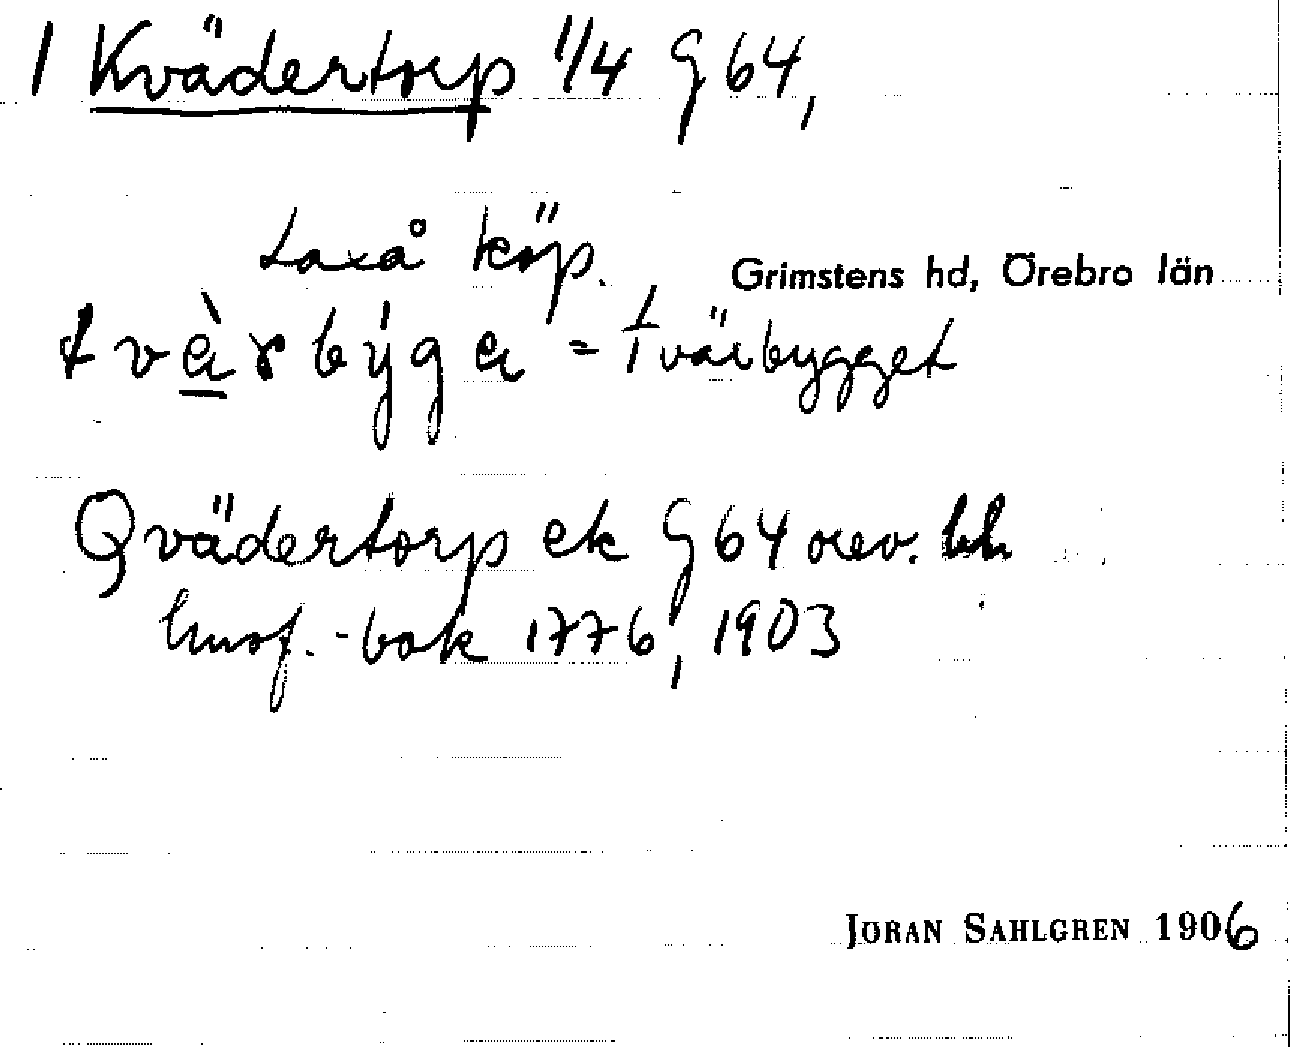 1 Kvädertorp 1/4 G 64,
Laxå köp. Grimstens hd, Örebro län
= Tvärbygget
Qvädertorp ek G 64
husf.-bok 1776, 1903
JÖRAN SAHLGREN 1906